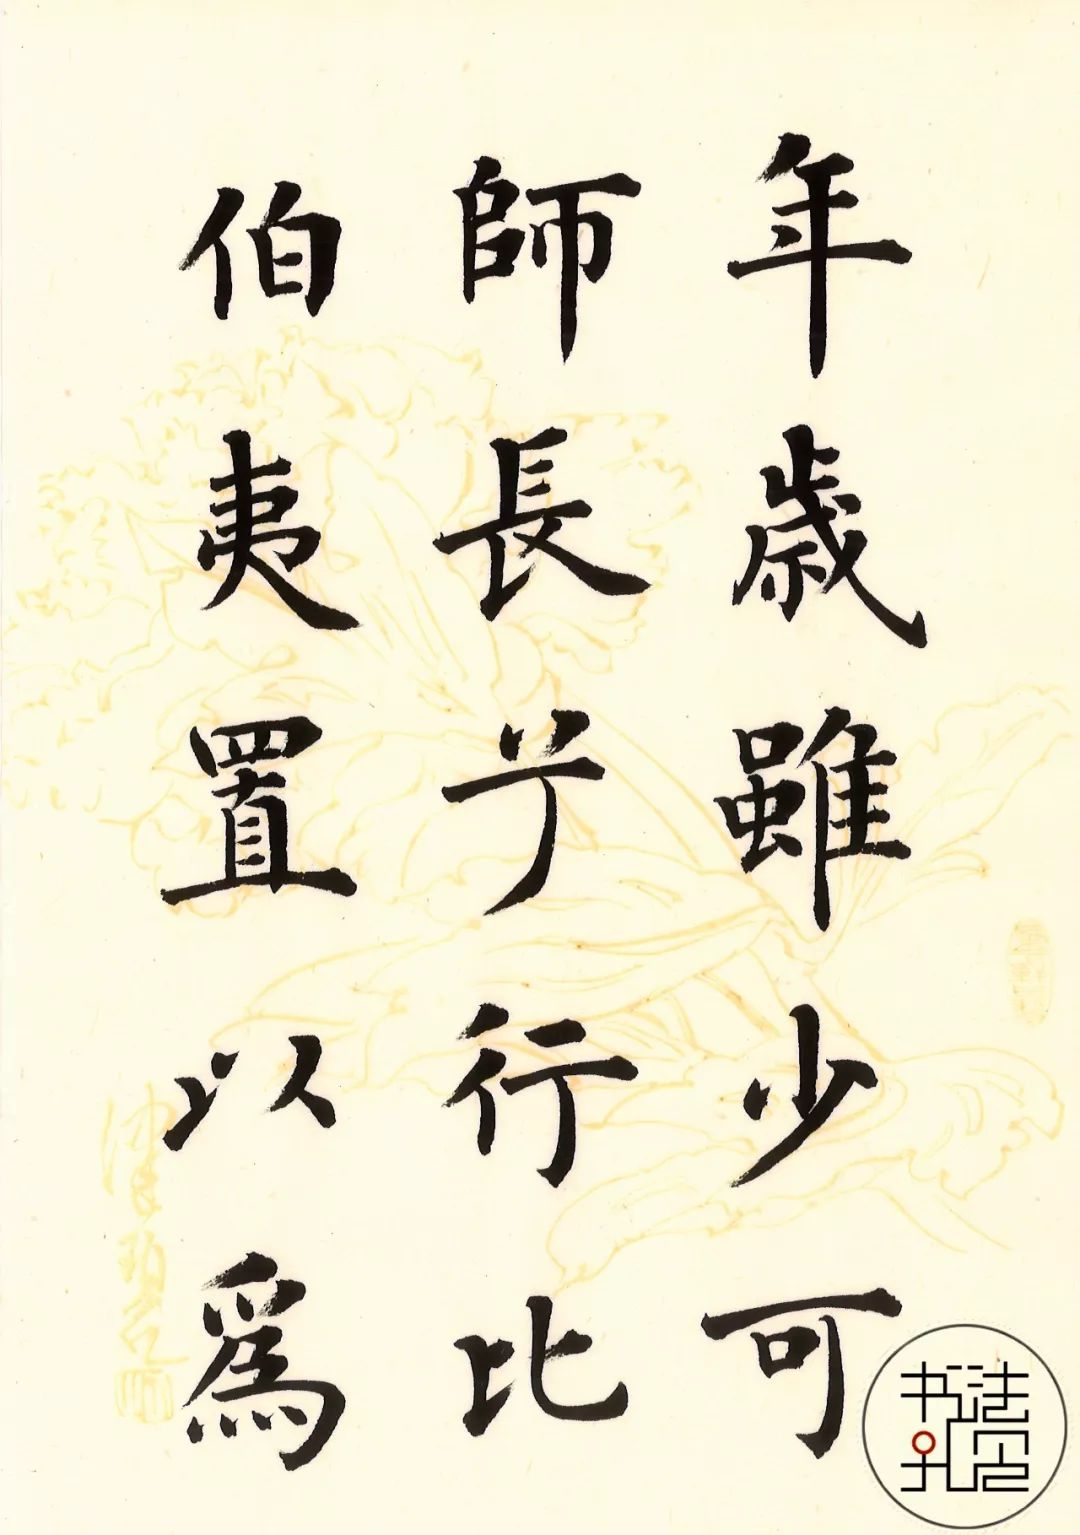 年歲雖少可
師長兮行比
伯夷置以爲
书法